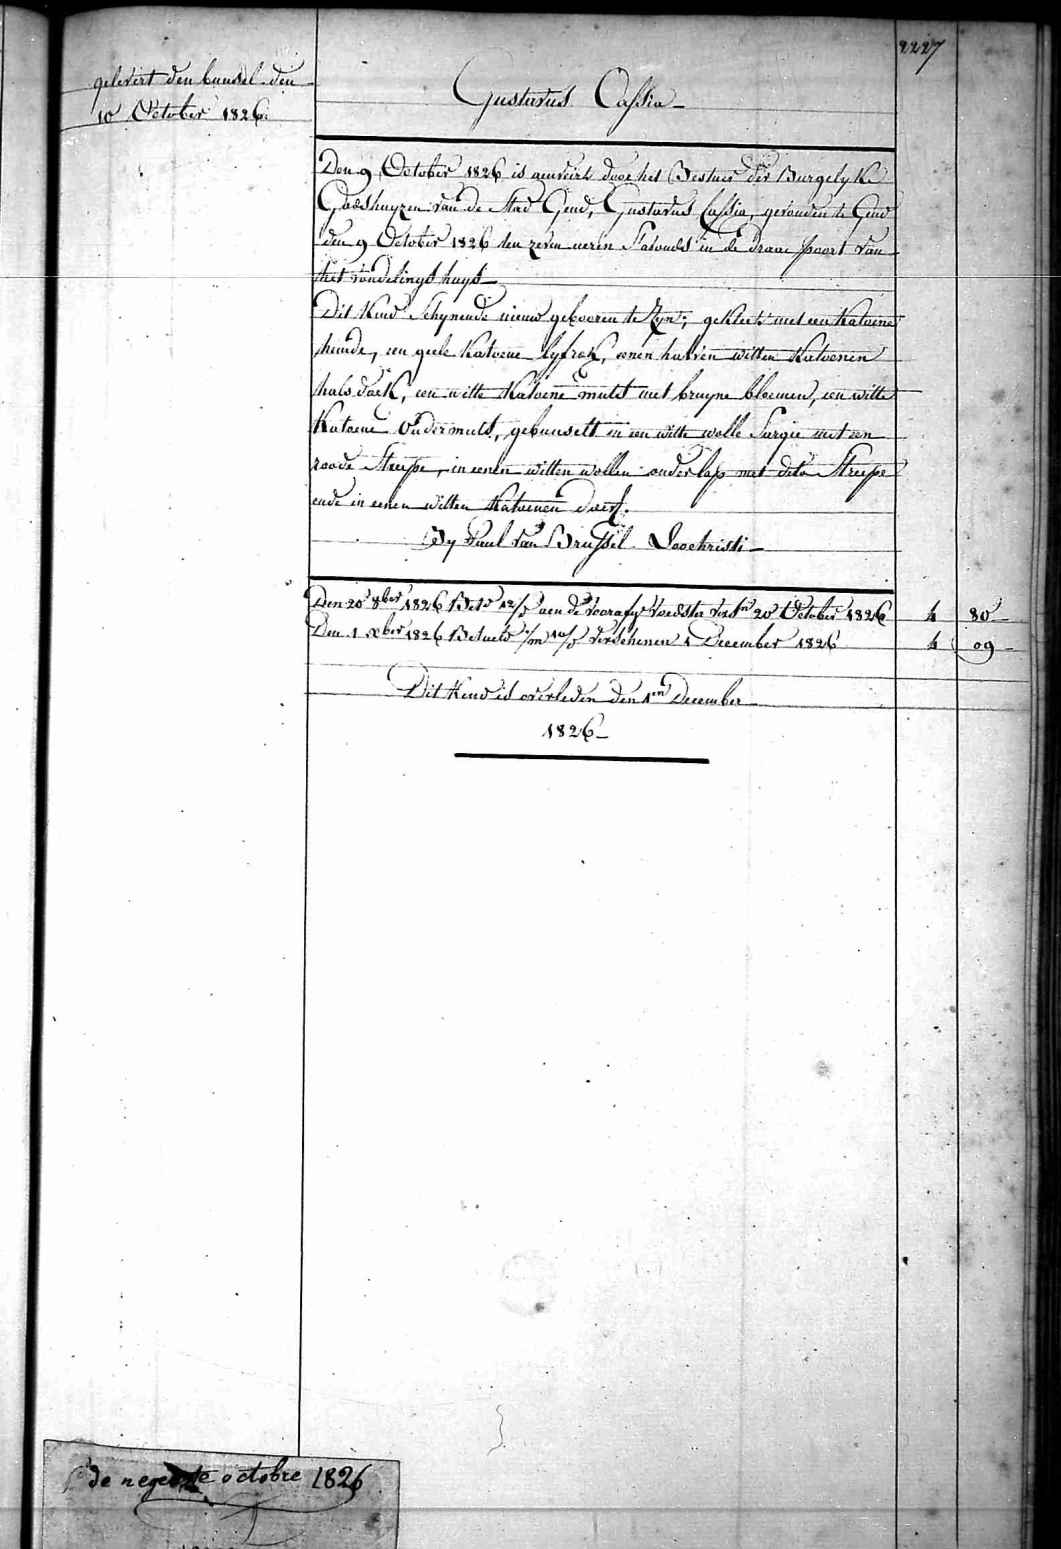 2227
gelevert den bunsel den
10 October 1826.
Gustavus Cassia
Den 9 October 1826 is aenveirt door het Bestuer der Burgelyke
Godshuyzen van de Stad Gend, Gustavus Cassia, gevonden te Gend
den 9 October 1826 ten zeven ueren s'avonds in de draae poort van
het vondelings huys
Dit Kind Schynende nieuw gebooren te Zyn; gekleet met een Katoene
hemde, een geele Katoene lyfrok, eenen halven witten Katoenen
halsdoek, een witte Katoene muts met bruyne bloemen, een witte
Katoene ondermuts, gebunselt in een witte wolle Sargie met een
roode Streepe, in eenen witten wollen onderlap met dito Streepe
ende in eenen witten Katoenen doek.
By Paul Van Brussel Loochristi
Den 20 8ber 1826 Bet° 12/d aen de voorafg voedster versn 20 October 1826 4 80
Den 1 xber 1826 Betaelt 1/m 10/d verschenen 1 December 1826 4 09
Dit Kind is overleden den 1en December
1826
de negenste octobre 1826